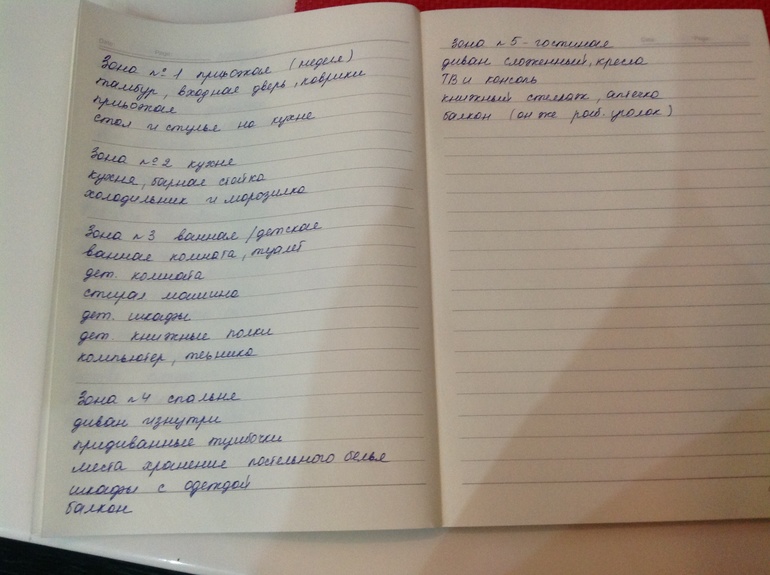 Зона №1 прихожая (неделя)
тамбур, входная дверь, коврики
прихожая
стол и стулья на кухне
Зона №2 кухня
кухня, барная стойка
холодильник и морозилка
Зона №3 ванная/детская
ванная комната, туалет
дет. комната
стирал машина
дет. шкафы
дет. книжные полки
компьютер, техника
Зона №4 спальня
диван изнутри
придиванные тумбочки
места хранение постельного белья
шкафы с одеждой
балкон
Зона №5 - гостиная
диван сложенный, кресла
ТВ и консоль
книжный стеллаж, аптечка
балкон (он же раб. уголок)